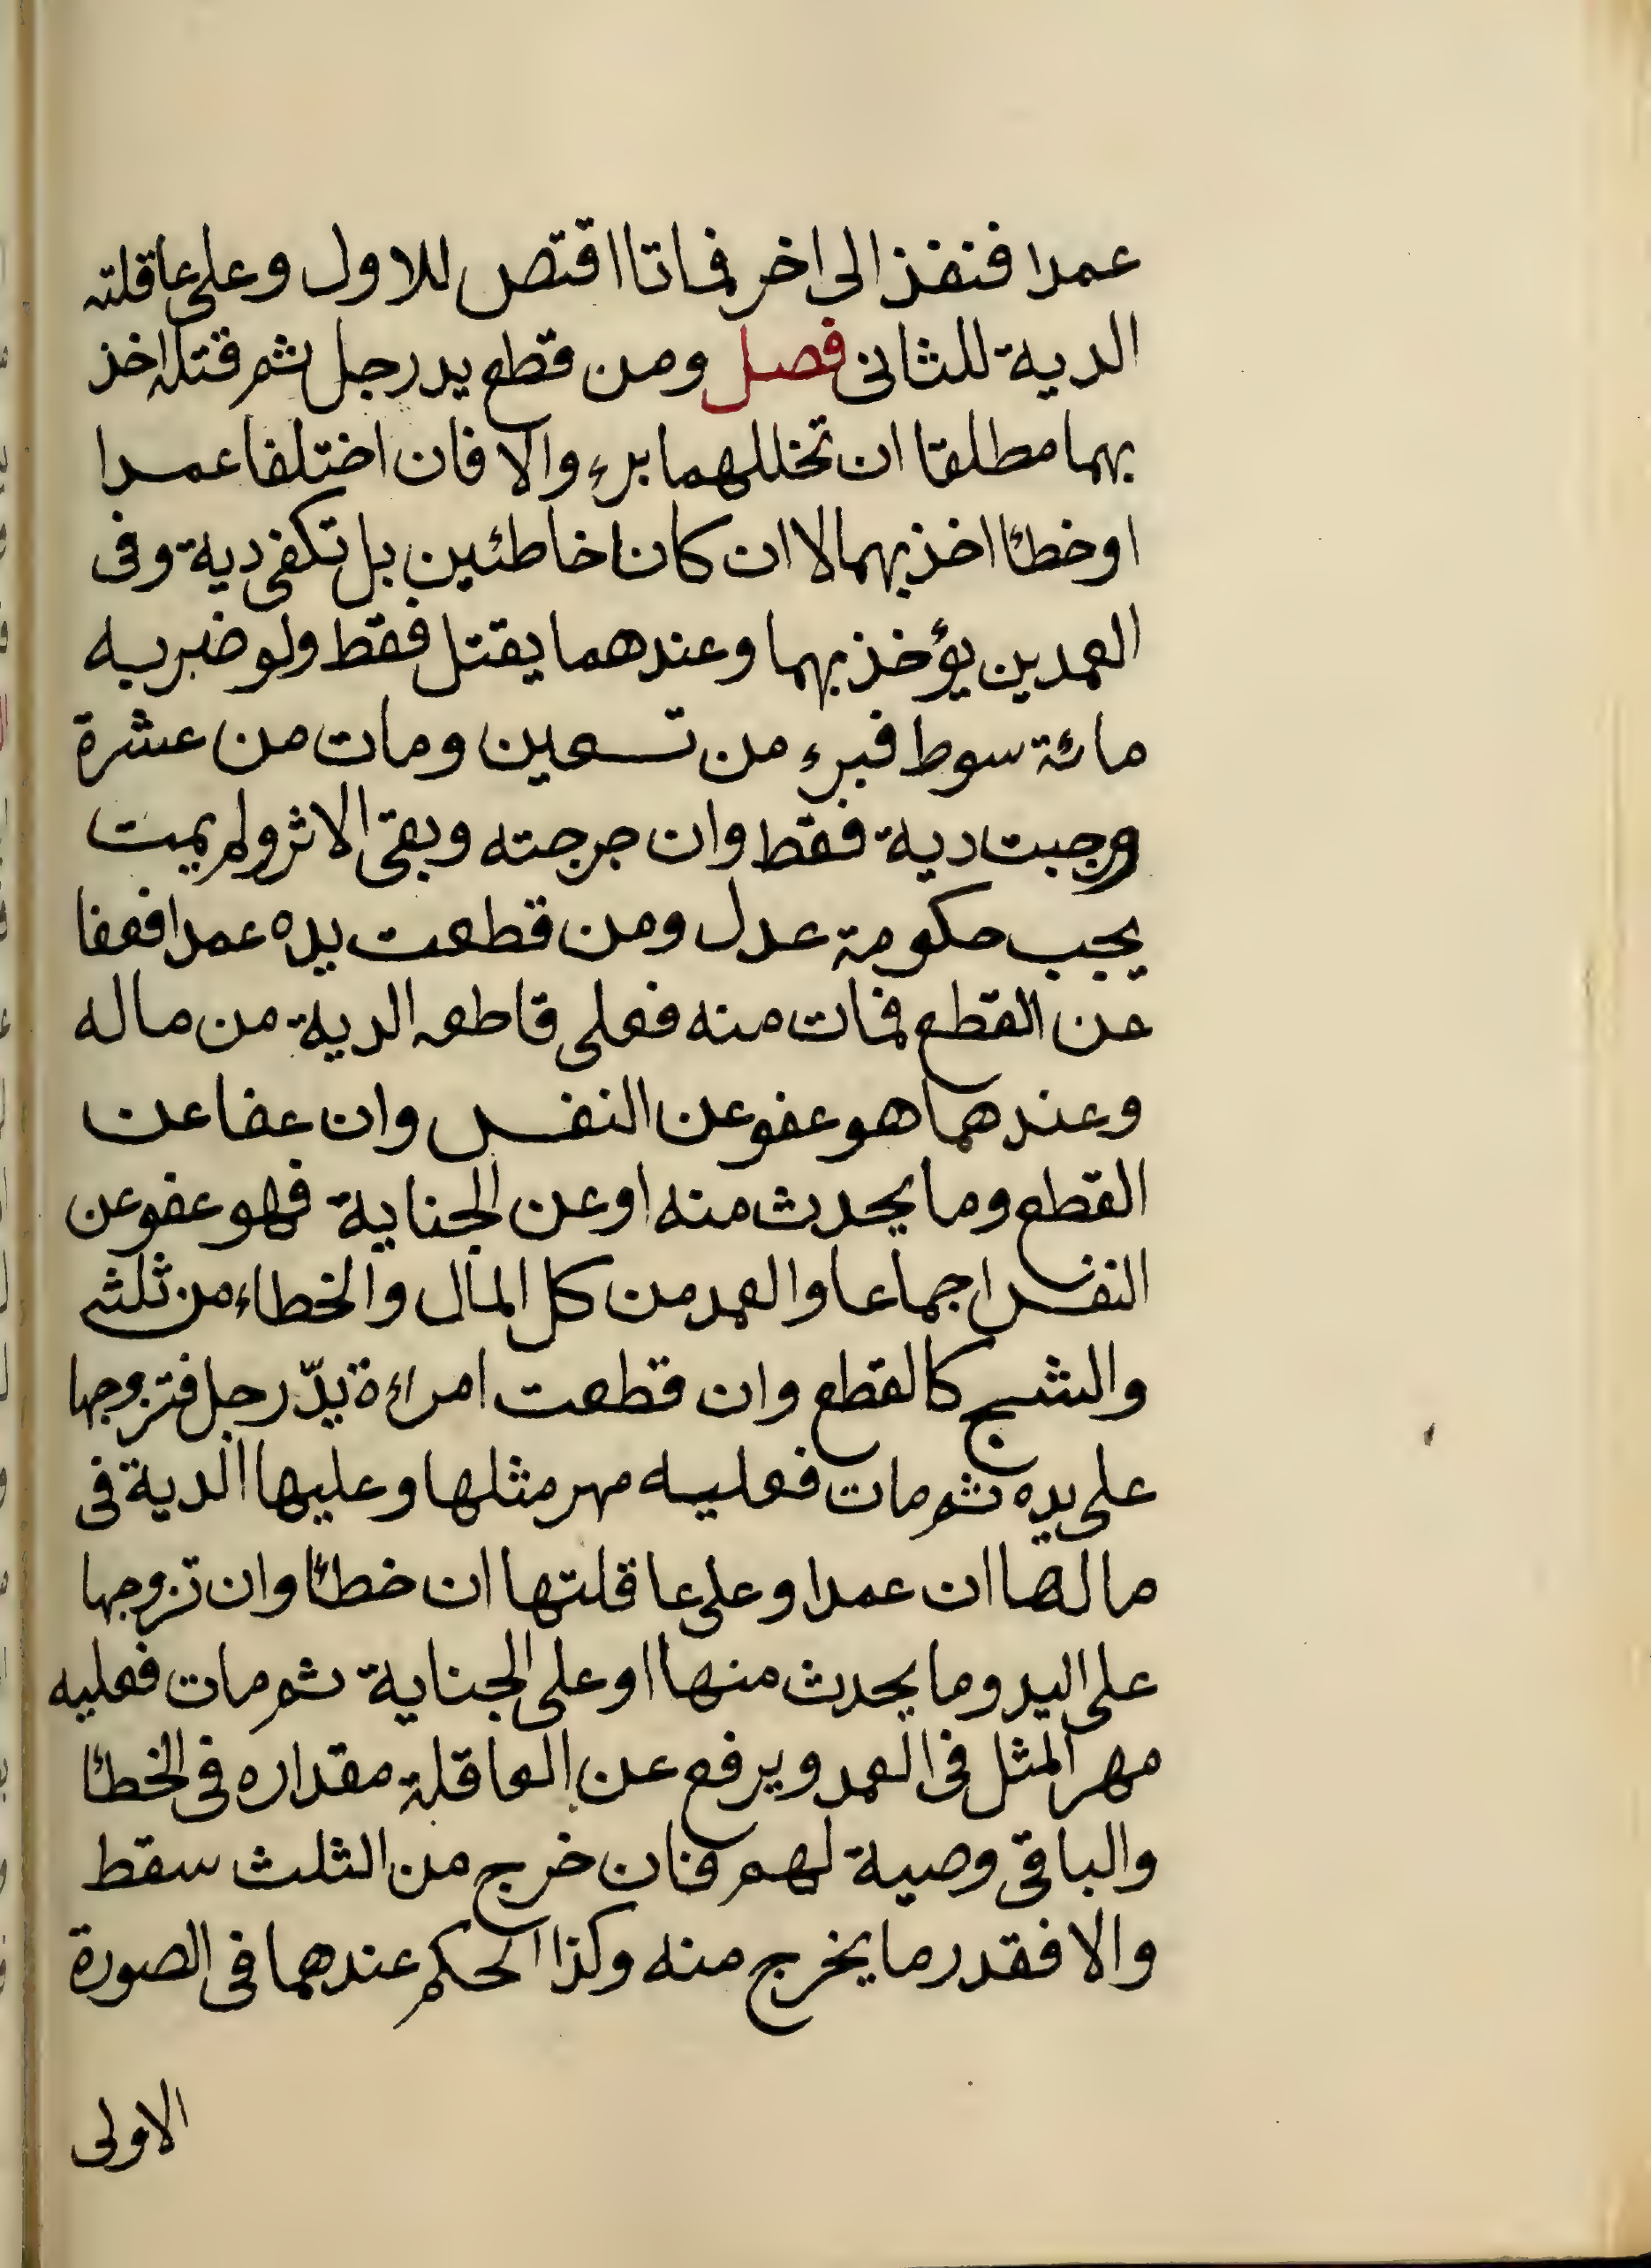 عمدا فنفذ الى اخر فماتا اقتص للاول وعلى عاقلته
الدية للثانى فصل ومن قطع يد رجل ثم قتله اخذ
بهما مطلقا ان تخللهما برء والا فان اختلفا عمدا
او خطئا اخذ بهما لا ان كانا خاطئين بل تكفى دية وفى
العمدين يؤخذ بهما وعندهما يقتل فقط ولو ضربه
مائة سوط فبرء من تسعين ومات من عشرة
وجبت دية فقط وان جرحته وبقى الاثر ولم يمت
يجب حكومة عدل ومن قطعت يده عمدا فعفا
عن القطع فمات منه فعلى قاطعه الدية من ماله
وعندهما هو عفو عن النفس وان عفا عن
القطع وما يحدث منه او عن الجناية فهو عفو عن
النفس اجماعا والعمد من كل المال والخطاء من ثلثه
والشج كالقطع وان قطعت امراءة يدّ رجل فتزوجها
على يده ثم مات فعليه مهر مثلها وعليها الدية فى
مالها ان عمدا وعلى عاقلتها ان خطئا وان تزوجها
على اليد وما يحدث منها او على الجناية ثم مات فعليه
مهر المثل فى العمد ويرفع عن العاقلة مقداره فى الخطئا
والباقى وصية لهم فان خرج من الثلث سقط
والا فقدر ما يخرج منه وكذا الحكم عندهما فى الصورة
الاولى